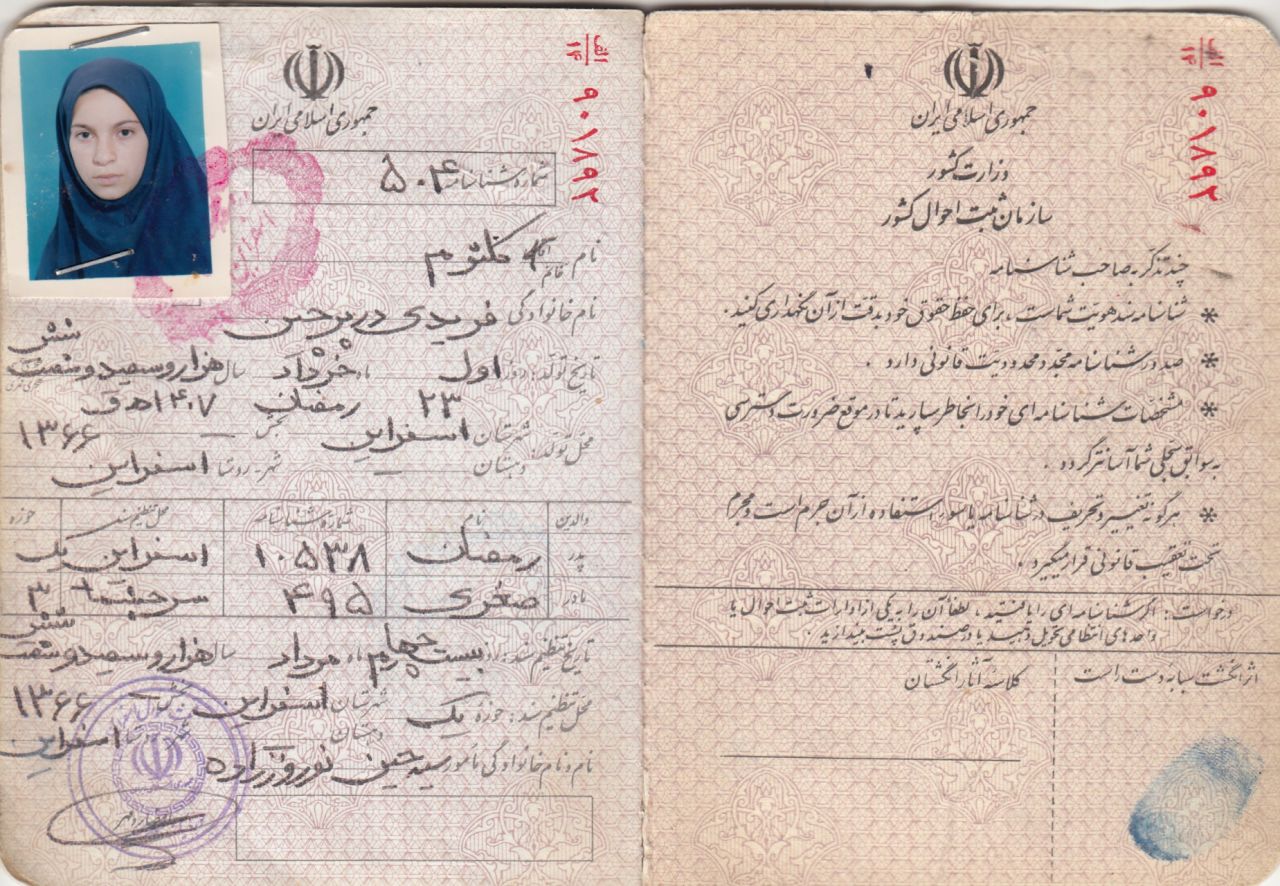 الف
۱۴
۹۰۱۸۹۲
جمهوری اسلامی ایران
وزارت کشور
سازمان ثبت احوال کشور
چند تذکر به صاحب شناسنامه
* شناسنامه سند هویت شماست ، برای حفظ حقوق خود بدقت از آن نگهداری کنید .
* صدور شناسنامه مجدد محدودیت قانونی دارد .
* مشخصات شناسنامه ای خود را بخاطر بسپارید تا در موقع ضرورت دسترسی
به سوابق سجلی شما آسانتر گردد .
* هرگونه تغییر و تحریف در شناسنامه یا سوء استفاده از آن جرم است و مجرم
تحت تعقیب قانونی قرار میگیرد .
درخواست : اگر شناسنامه ای را یافتید ، لطفاً آن را به یکی از ادارات ثبت احوال یا
واحدهای انتظامی تحویل دهید یا در صندوق پست بیندازید .
اثر انگشت سبابه دست راست
کلاسه آثار انگشتان
الف
۱۴
۹۰۱۸۹۲
جمهوری اسلامی ایران
شماره شناسنامه ۵۰۴
نام آقا خانم کلثوم
نام خانوادگی فریدی درپرچین
تاریخ تولد : روز اول ماه خرداد سال هزار و سیصد و شصت شش
۲۳ رمضان ۱۴۰۷ ه ق
محل تولد : شهرستان اسفراین بخش ۱۳۶۶
دهستان شهر - روستا اسفراین
والدین نام شماره شناسنامه محل تنظیم سند حوزه
پدر رمضان ۱۰۵۳۸ اسفراین یک
مادر صغری ۴۹۵ سرچشمه ۳
تاریخ تنظیم سند : روز بیست چهارم ماه مرداد سال هزار و سیصد و شصت شش
محل تنظیم سند : حوزه یک شهرستان اسفراین بخش ۱۳۶۶
دهستان اسفراین
نام و نام خانوادگی مأمور سید حسین نوروززاده